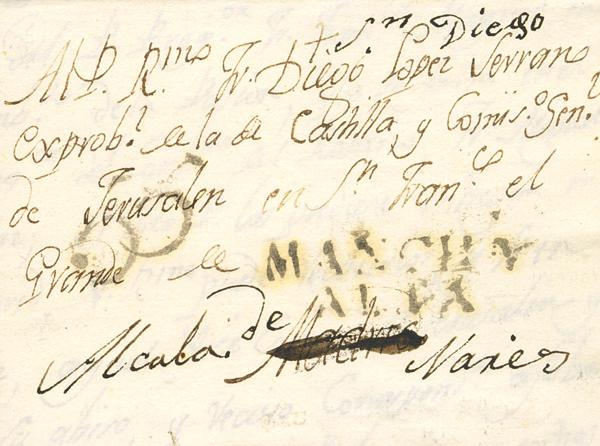 Sn Diego
Al P. Rmo Fr. Diego Lopez Serrano
Exprobl de la de Castilla, y Comiso Genl
de Jerusalen en Sn Franco el
Grande de
MANCHA
ALTA
Alcala de Nares